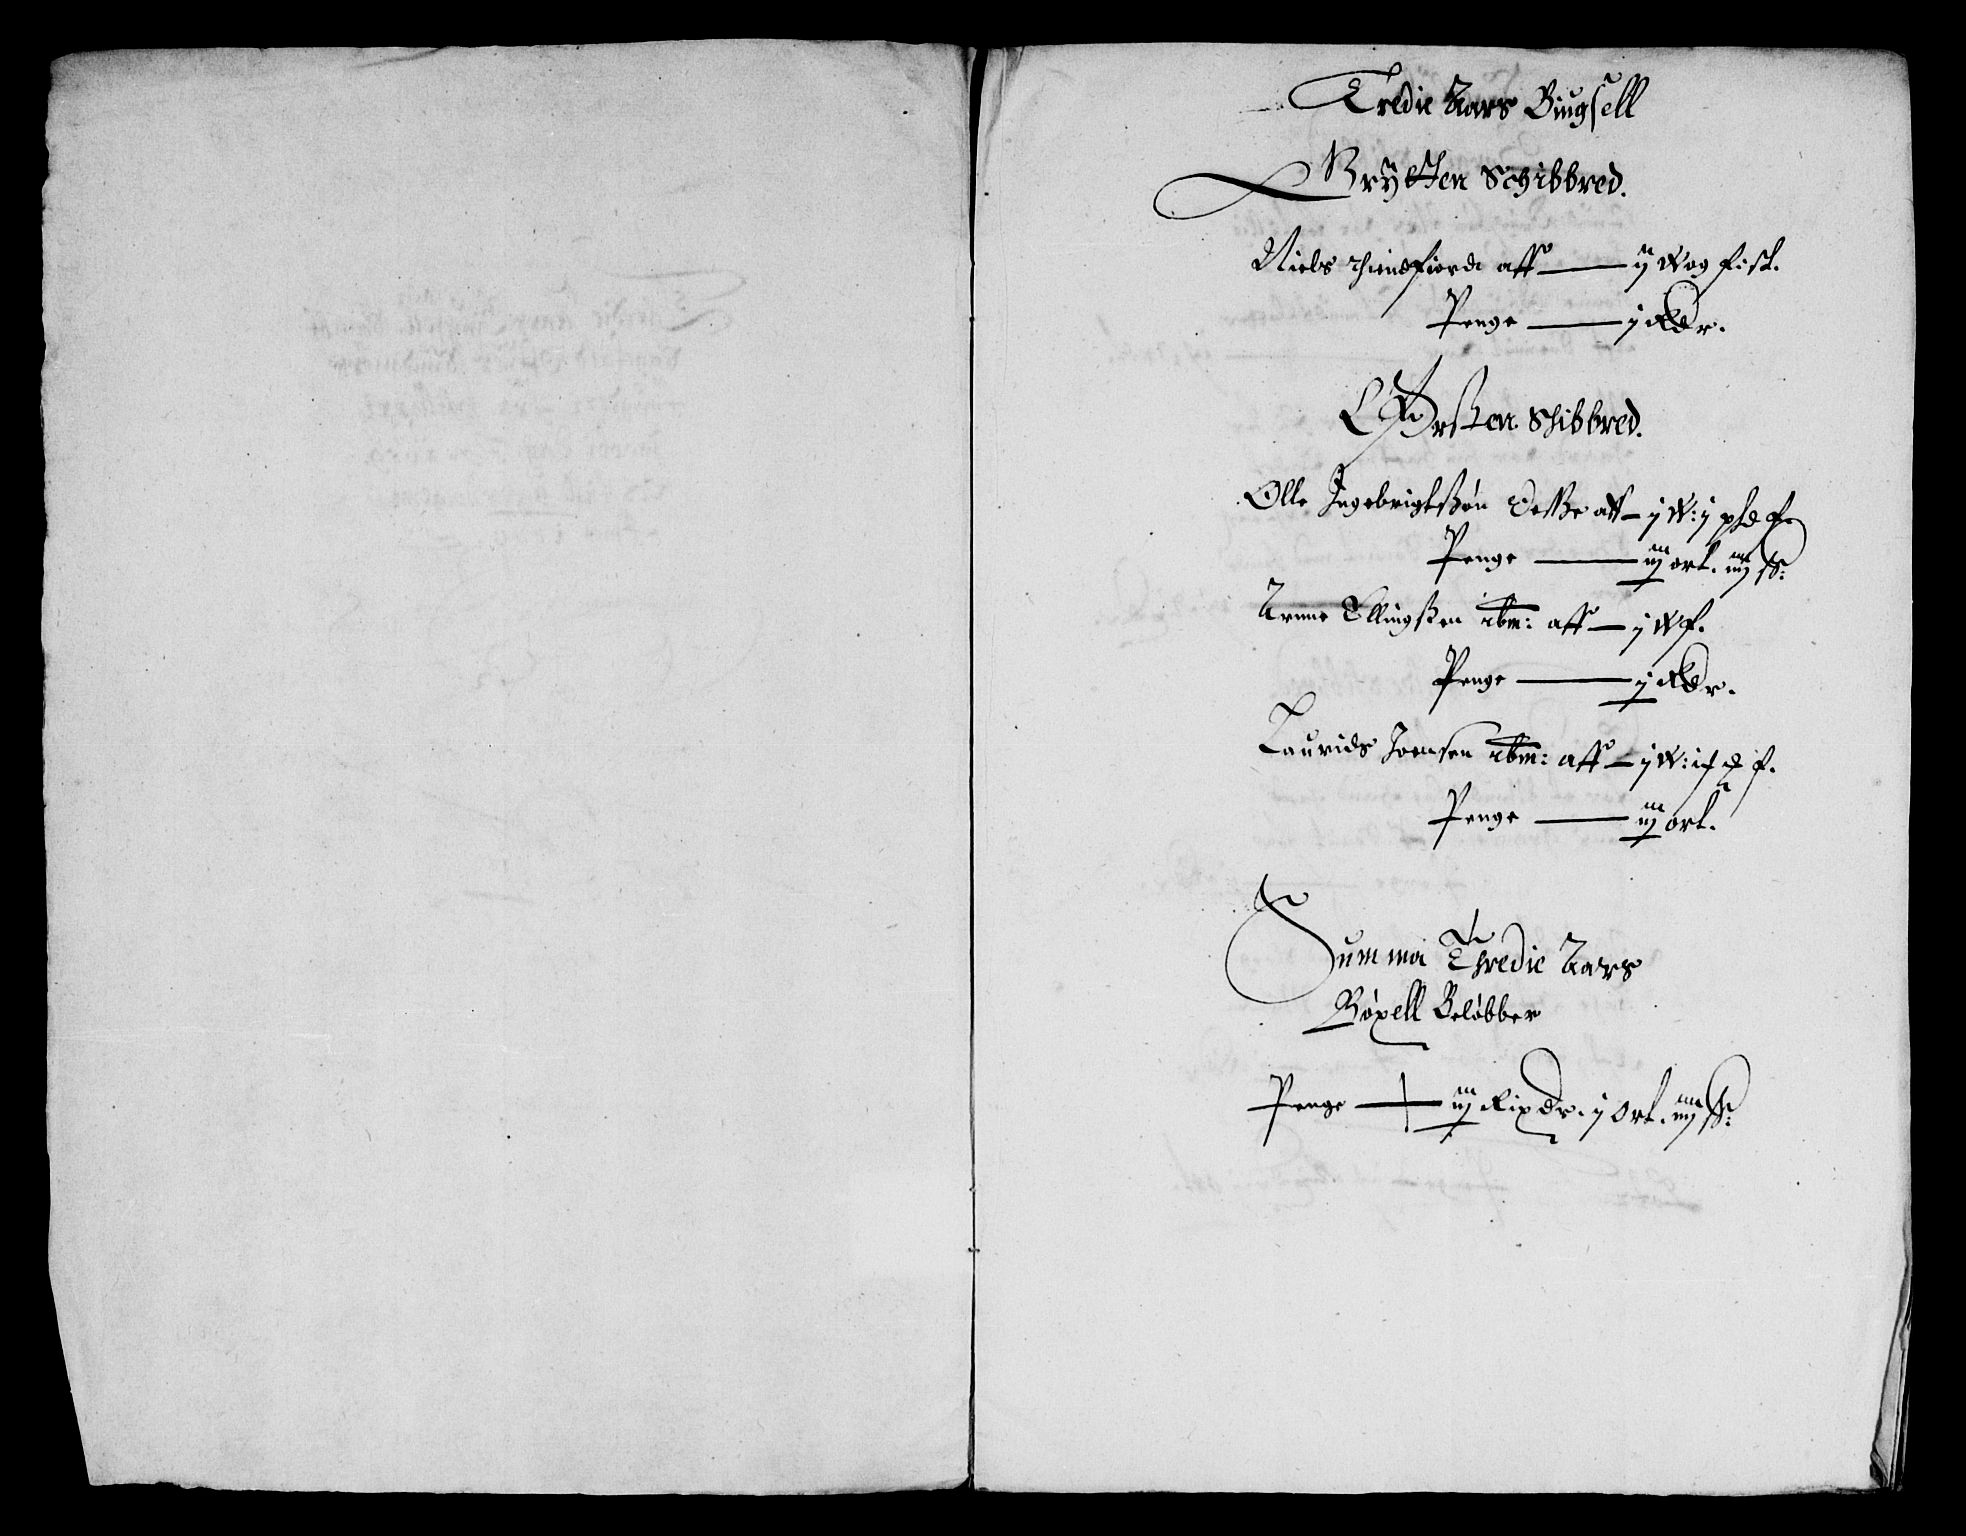 Tredie Aars Biugsell
Brÿtten Schibbred.
Niels Indfiord aff — ij Wog fisk.
Penge — j Rdr.
Ørsten Skibbred.
Olle Ingebrigtßøn aff — j W: j pd f.
Penge — iij ort. iiij ß:
Arnne Ellingßen ibm: aff — j W f.
Penge — j Rdr.
Laurids Joensen ibm: aff — j W: f.
Penge — iij ort.
Summa Thredie Aars
Bøxell Beløbber
Penge — iij Rixdr. j Ort. iiij ß: